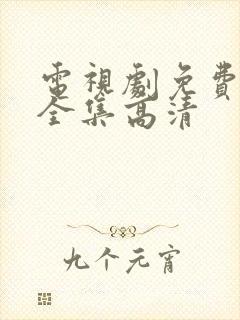 電視劇免費
全集高清
九个元宵